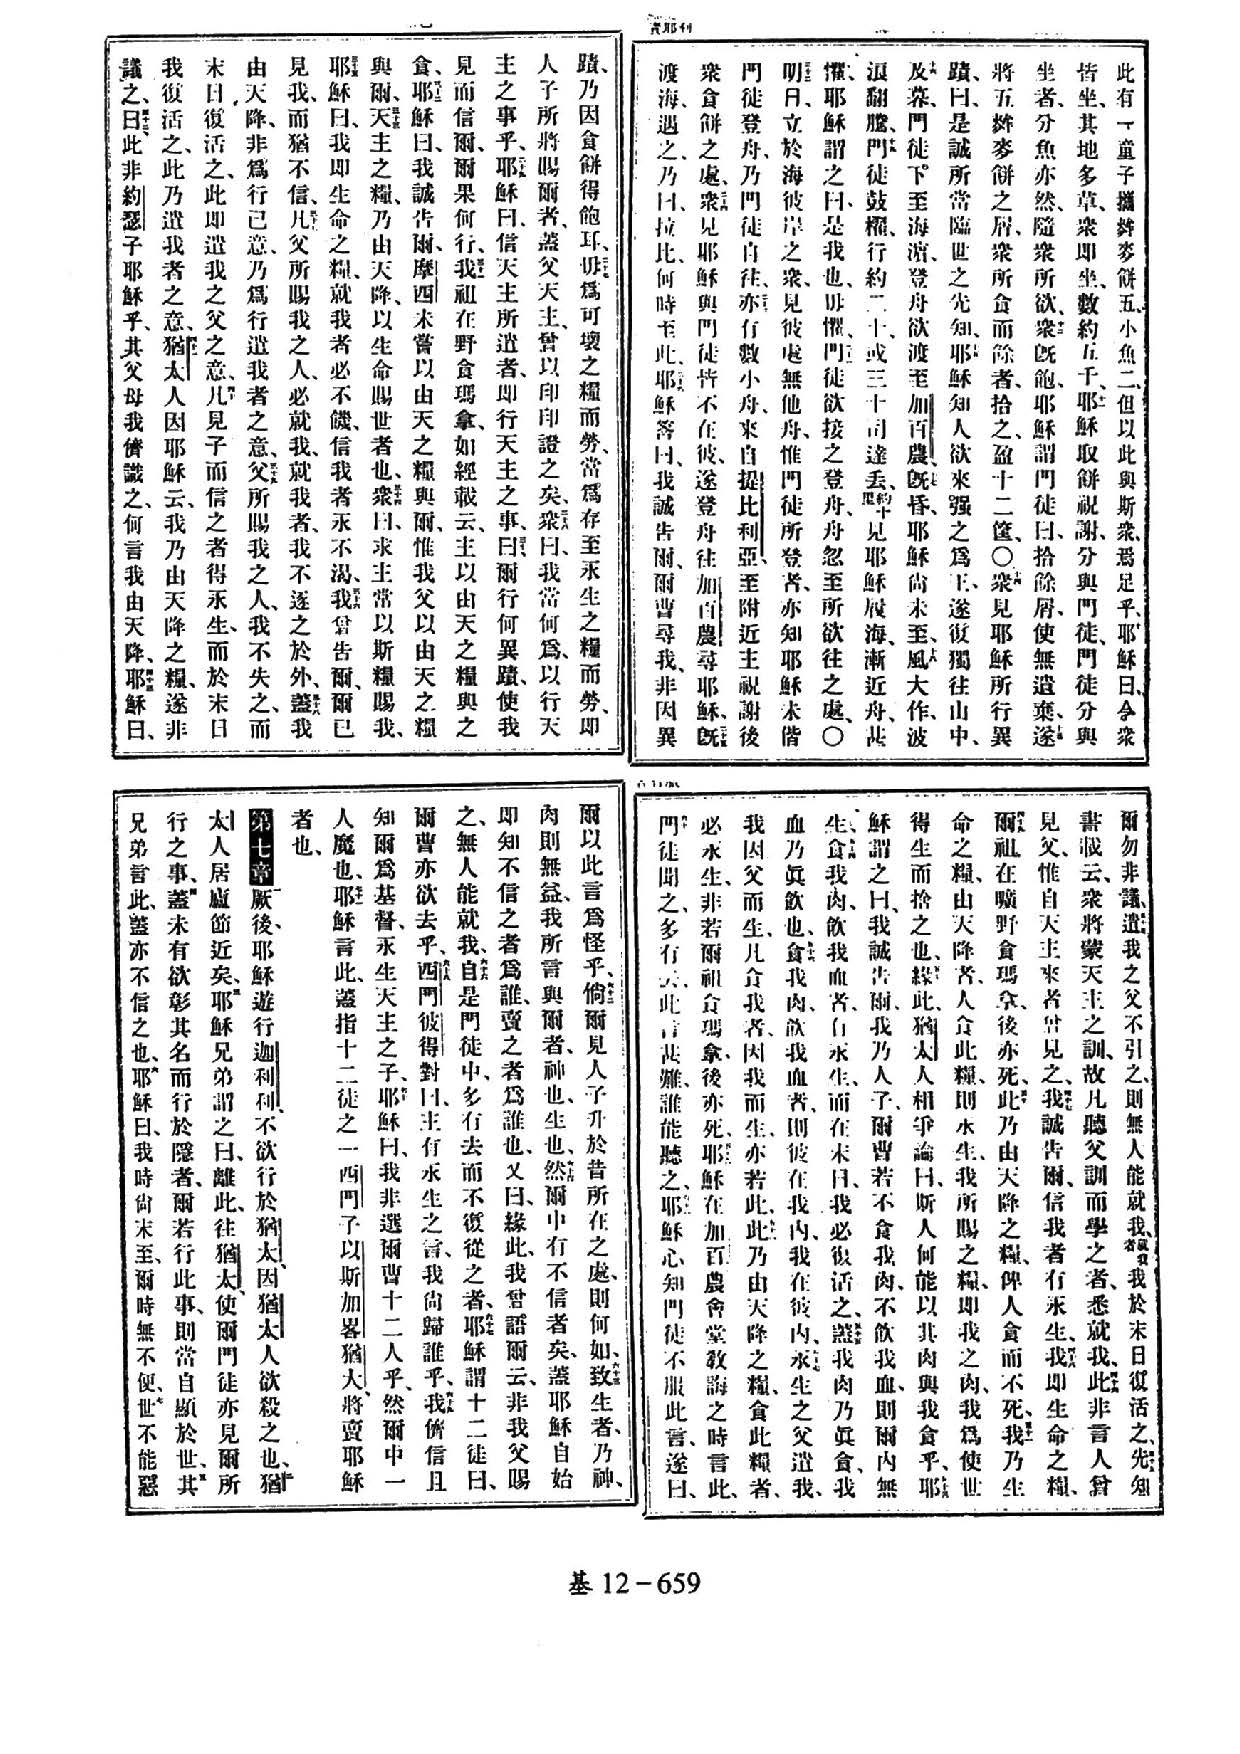 此有一童子攜䴬麥餅五、小魚二、但以此與斯衆、焉足乎、耶穌曰、令衆
皆坐、其地多草、衆即坐、數約五千、耶穌取餅祝謝、分與門徒、門徒分與
坐者、分魚亦然、隨衆所欲、衆旣飽、耶穌謂門徒曰、拾餘屑、使無遺棄、遂
將五䴬麥餅之屑、衆所食而餘者、拾之、盈十二筐、〇衆見耶穌所行異
蹟、曰、是誠所當臨世之先知、耶穌知人欲來强之爲王、遂復獨往山中、
及暮、門徒下至海濱、登舟欲渡至加百農、旣昏、耶穌尚未至、風大作、波
浪翻騰、門徒鼓櫂、行約二十、或三十司達丢、約十里見耶穌履海、漸近舟、甚
懼、耶穌謂之曰、是我也、毋懼、門徒欲接之登舟、舟忽至所欲往之處、〇
明日、立於海彼岸之衆、見彼處無他舟、惟門徒所登者、亦知耶穌未偕
門徒登舟、乃門徒自往、亦有數小舟、來自提比利亞、至附近主祝謝後
衆食餅之處、衆見耶穌與門徒皆不在彼、遂登舟往加百農尋耶穌、旣
渡海、遇之、乃曰、拉比、何時至此、耶穌答曰、我誠告爾、爾曹尋我、非因異
蹟、乃因食餅得飽耳、毋爲可壞之糧而勞、當爲存至永生之糧而勞、即
人子所將賜爾者、蓋父天主、曾以印印證之矣、衆曰、我當何爲、以行天
主之事乎、耶穌曰、信天主所遣者、即行天主之事、曰、爾行何異蹟、使我
見而信爾、爾果何行、我祖在野食瑪拿、如經載云、主以由天之糧與之
食、耶穌曰、我誠告爾、摩西未嘗以由天之糧與爾、惟我父以由天之糧
與爾、天主之糧、乃由天降、以生命賜世者也、衆曰、求主常以斯糧賜我、
耶穌曰、我即生命之糧、就我者必不饑、信我者永不渴、我曾告爾、爾已
見我、而猶不信、凡父所賜我之人、必就我、就我者、我不逐之於外、蓋我
由天降、非爲行己意、乃爲行遣我者之意、父所賜我之人、我不失之、而
末日復活之、此即遣我之父之意、凡見子而信之者得永生、而於末日
我復活之、此乃遣我者之意、猶太人因耶穌云、我乃由天降之糧、遂非
議之、曰、此非約瑟子耶穌乎、其父母我儕識之、何言我由天降、耶穌曰、
爾勿非議、遣我之父不引之、則無人能就我、就我者我於末日復活之、先知
書載云、衆將蒙天主之訓、故凡聽父訓而學之者、悉就我、此非言人曾
見父、惟自天主來者曾見之、我誠告爾、信我者有永生、我即生命之糧、
爾祖在曠野食瑪拿、後亦死、此乃由天降之糧、俾人食而不死、我乃生
命之糧、由天降者、人食此糧、則永生、我所賜之糧、即我之肉、我爲使世
得生而捨之也、緣此、猶太人相爭論曰、斯人何能以其肉與我食乎、耶
穌謂之曰、我誠告爾、我乃人子、爾曹若不食我肉、不飲我血、則爾內無
生、食我肉、飲我血者、有永生、而在末日、我必復活之、蓋我肉乃眞食、我
血乃眞飲也、食我肉、飲我血者、則彼在我內、我在彼內、永生之父遣我、
我因父而生、凡食我者、因我而生、亦若此、此乃由天降之糧、食此糧者、
必永生、非若爾祖食瑪拿、後亦死、耶穌在加百農會堂敎誨之時言此、
門徒聞之、多有云、此言甚難、誰能聽之、耶穌心知門徒不服此言、遂曰、
爾以此言爲怪乎、倘爾見人子升於昔所在之處、則何如、致生者、乃神、
肉則無益、我所言與爾者、神也、生也、然爾中有不信者矣、蓋耶穌自始
即知不信之者爲誰、賣之者爲誰也、又曰、緣此、我曾語爾云、非我父賜
之、無人能就我、自是門徒中、多有去而不復從之者、耶穌謂十二徒曰、
爾曹亦欲去乎、西門彼得對曰、主有永生之言、我尙歸誰乎、我儕信且
知爾爲基督、永生天主之子、耶穌曰、我非選爾曹十二人乎、然爾中一
人魔也、耶穌言此、蓋指十二徒之一西門子以斯加畧猶大、將賣耶穌
者也、
第七章 厥後、耶穌遊行迦利利、不欲行於猶太、因猶太人欲殺之也、猶
太人居廬節近矣、耶穌兄弟謂之曰、離此、往猶太、使爾門徒亦見爾所
行之事、蓋未有欲彰其名而行於隱者、爾若行此事、則當自顯於世、其
兄弟言此、蓋亦不信之也、耶穌曰、我時尙未至、爾時無不便、世不能惡
基 12－659